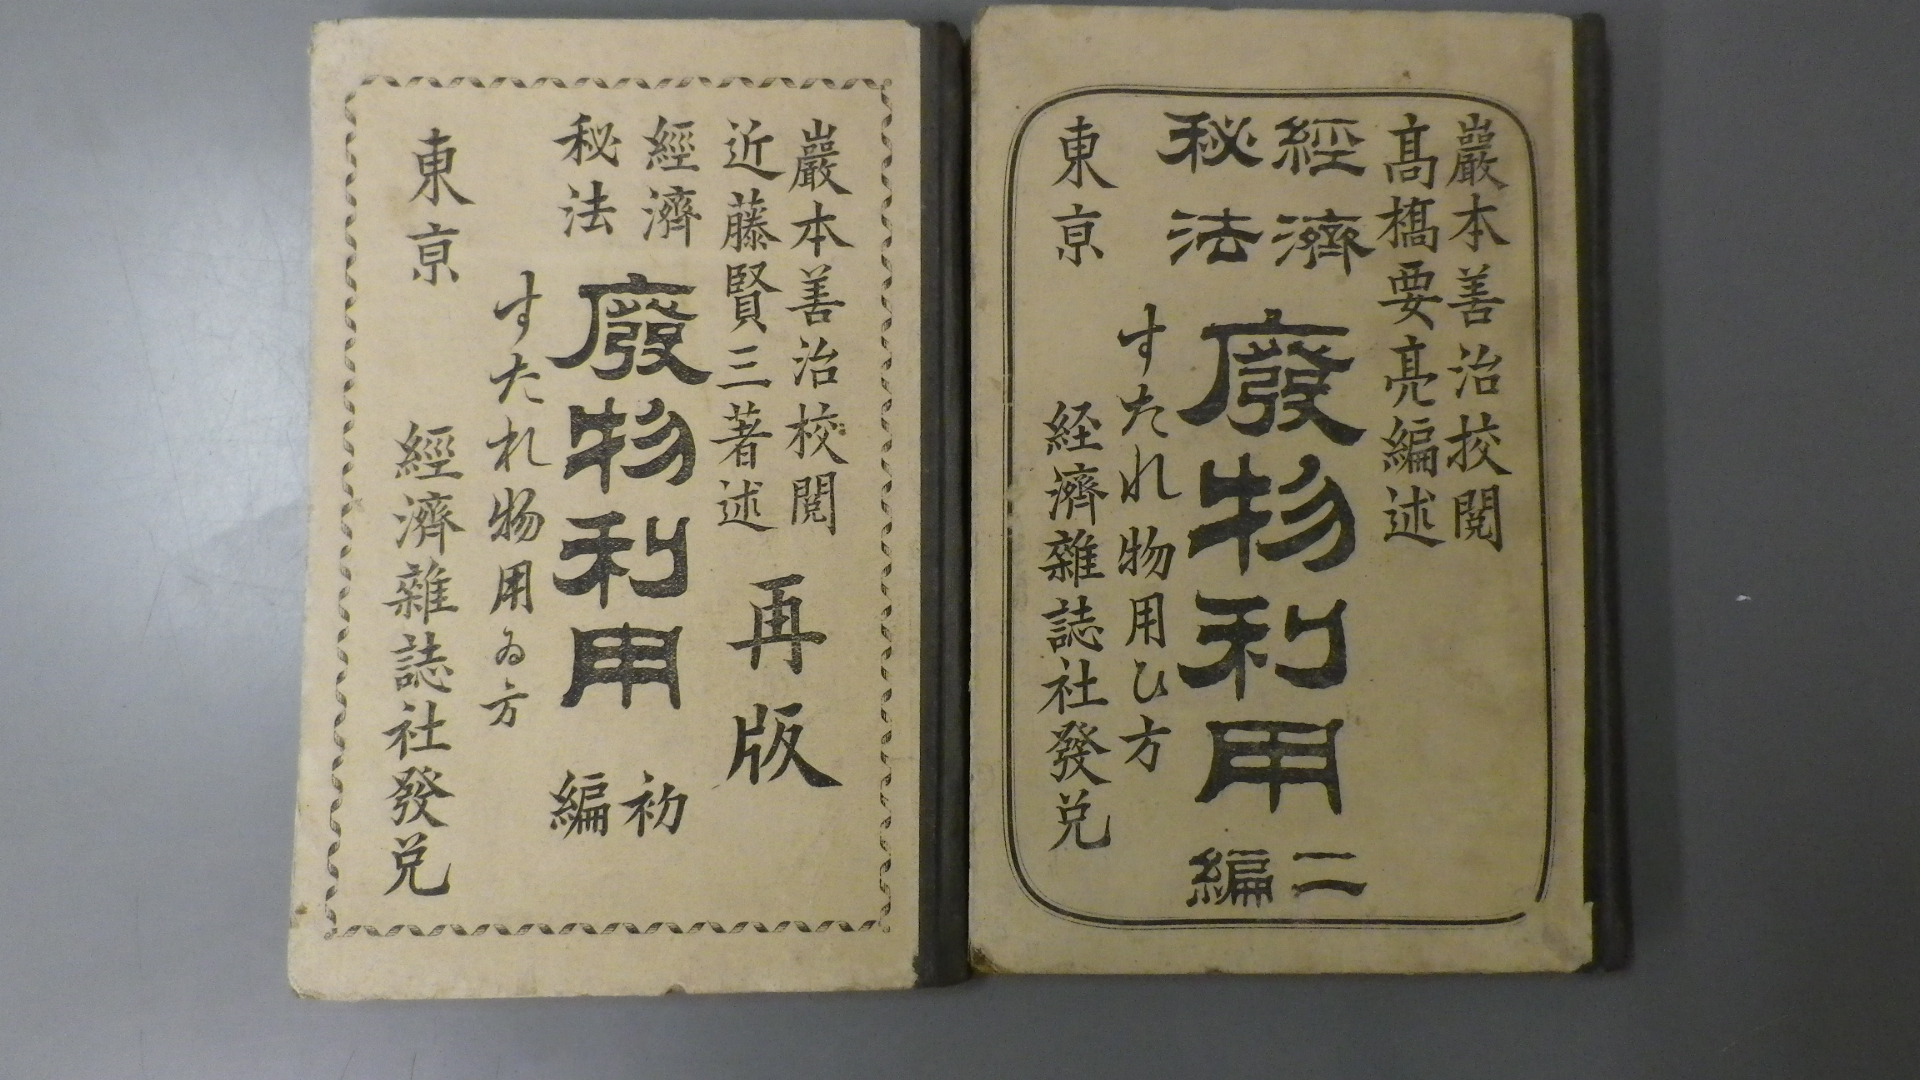 巖本善治校閲
高橋要亮編述
經濟
秘法
廢物利用
二編
すたれ物用ひ方
東亰
経濟雜誌社發兌
巖本善治校閲
近藤賢三著述
再版
經濟
秘法
廢物利用
初編
すたれ物用ゐ方
東亰
經濟雜誌社發兌